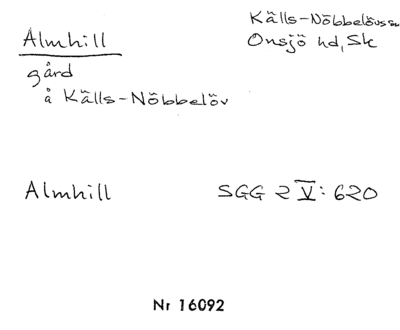 Almhill
Källs-Nöbbelövs sn
Onsjö hd, Sk
gård
å Källs-Nöbbelöv
Almhill SGG 2 V: 620
Nr 16092